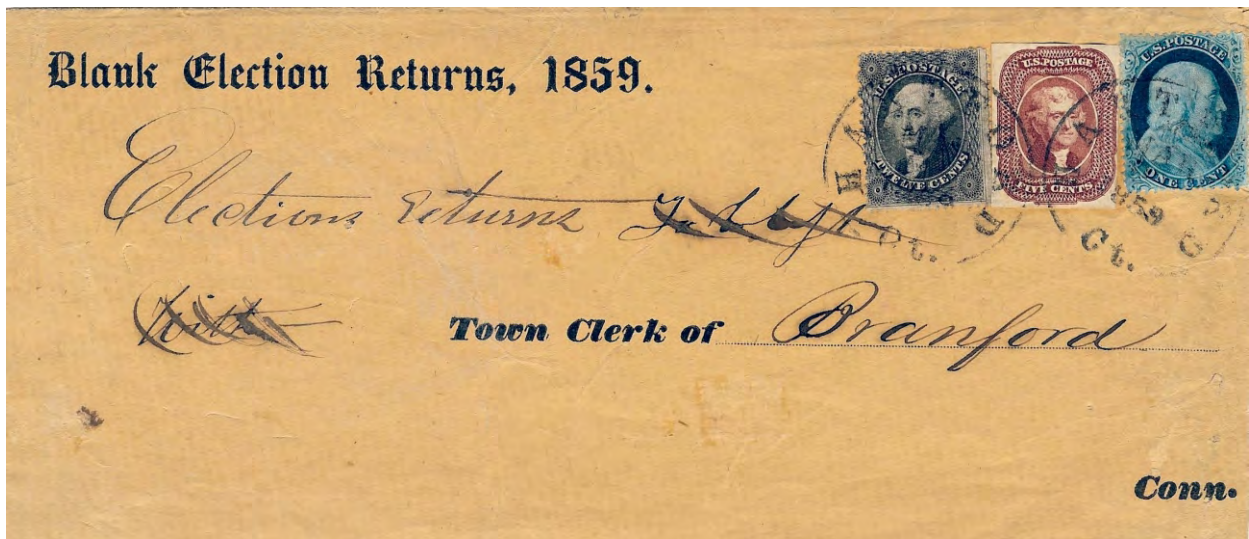 Blank Election Returns, 1859.
U.S. POSTAGE
TWELVE CENTS
U.S. POSTAGE
FIVE CENTS
U.S. POSTAGE
ONE CENT
HARTFORD
Ct.
1859
Ct.
Elections returns
Town Clerk of Branford
Conn.